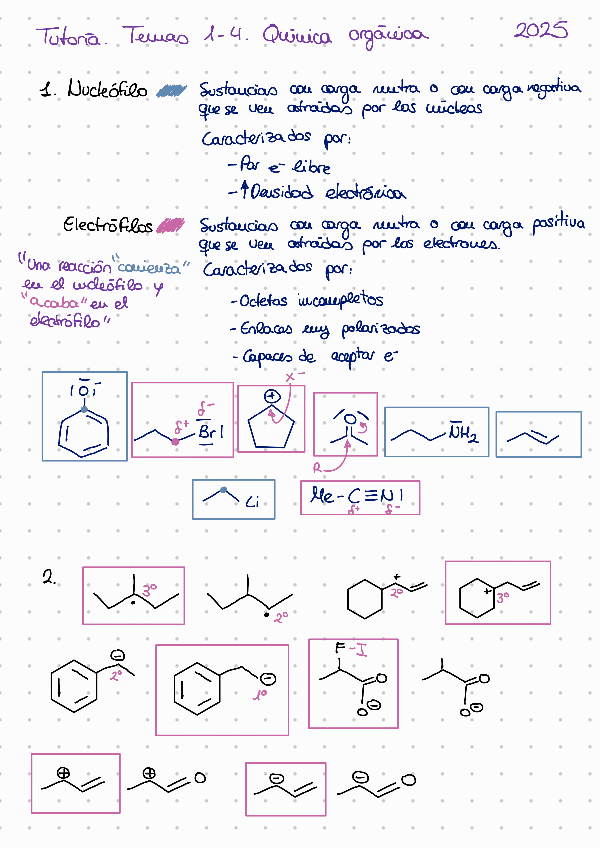 Tutoría. Temas 1-4. Química orgánica 2025
1. Nucleófilo Sustancias con carga neutra o con carga negativa
que se ven atraídas por los núcleos
Caracterizados por:
- Par e- libre
- ↑Densidad electrónica
Electrófilos Sustancias con carga neutra o con carga positiva
que se ven atraídas por los electrones.
"Una reacción "comienza"
en el nucleófilo y
"acaba" en el
electrófilo"
Caracterizados por:
- Octetos incompletos
- Enlaces muy polarizados
- Capaces de aceptar e-
|O|-
δ+ δ- Br|
⊕ X-
O R
NH2
Li
Me-C≡N|
δ+ δ-
2.
3º 2º + 2º + 3º
⊖ 2º ⊖ 1º F-I O O⊖ O O⊖
⊕ ⊕ O ⊖ ⊖ O